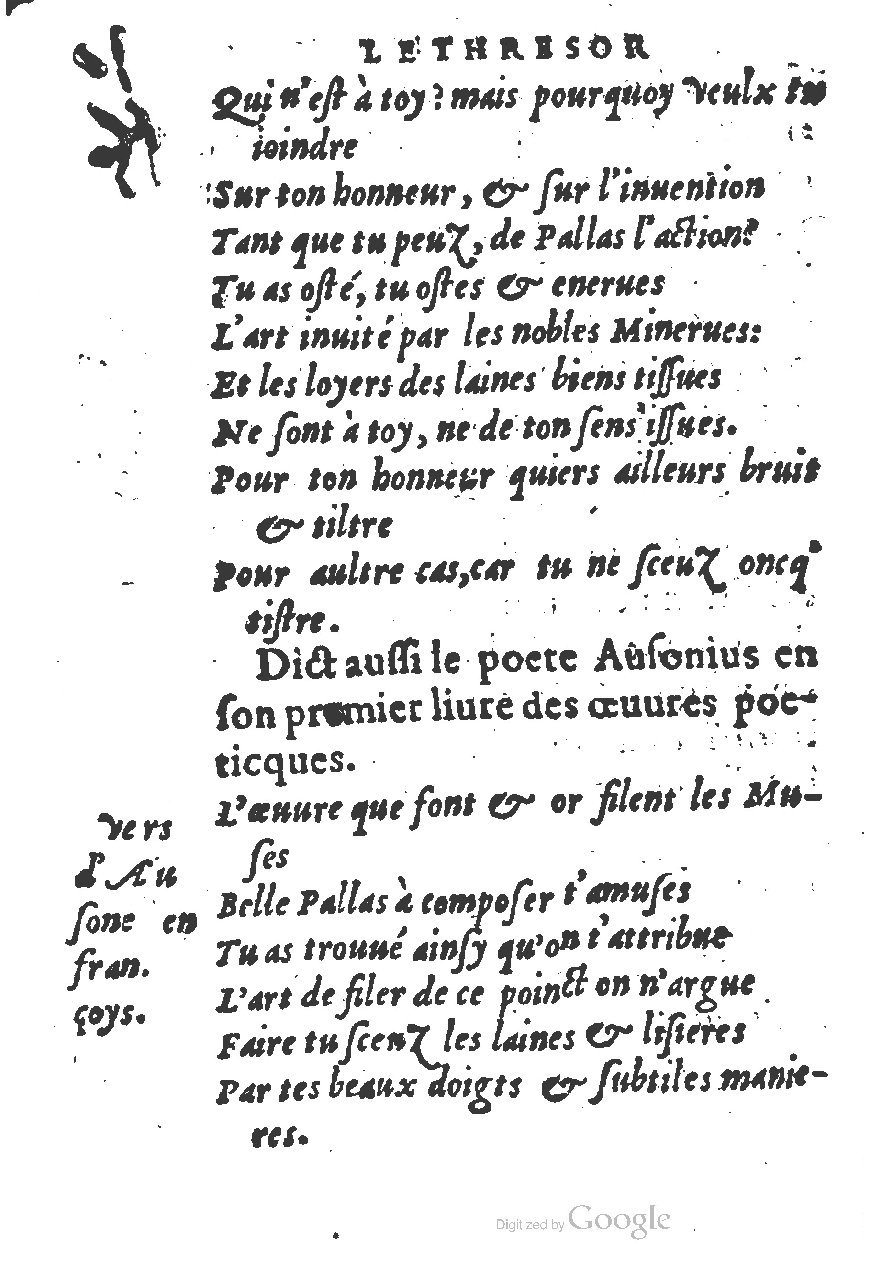 LE THRESOR
Qui n'eſt à toy? mais pourquoy veulx tu
ioindre
Sur ton honneur, & ſur l'inuention
Tant que tu peuz, de Pallas l'action?
Tu as oſté, tu oſtes & enerues
L'art inuité par les nobles Minerues:
Et les loyers des laines biens tiſſues
Ne ſont à toy, ne de ton ſens iſſues.
Pour ton honneur quiers ailleurs bruit
& tiltre
Pour aultre cas, car tu ne ſceuz oncq'
tiſtre.
Dict auſſi le poete Auſonius en
ſon premier liure des œuures poe-
ticques.
L'œuure que font & or filent les Mu-
ſes
Belle Pallas à compoſer t'amuſes
Tu as trouué ainſy qu'on t'attribue
L'art de filer de ce poinct on n'argue
Faire tu ſceuz les laines & liſieres
Par tes beaux doigts & ſubtiles manie-
res.
vers
d'Au
ſone en
fran.
çoys.
Digitized by Google